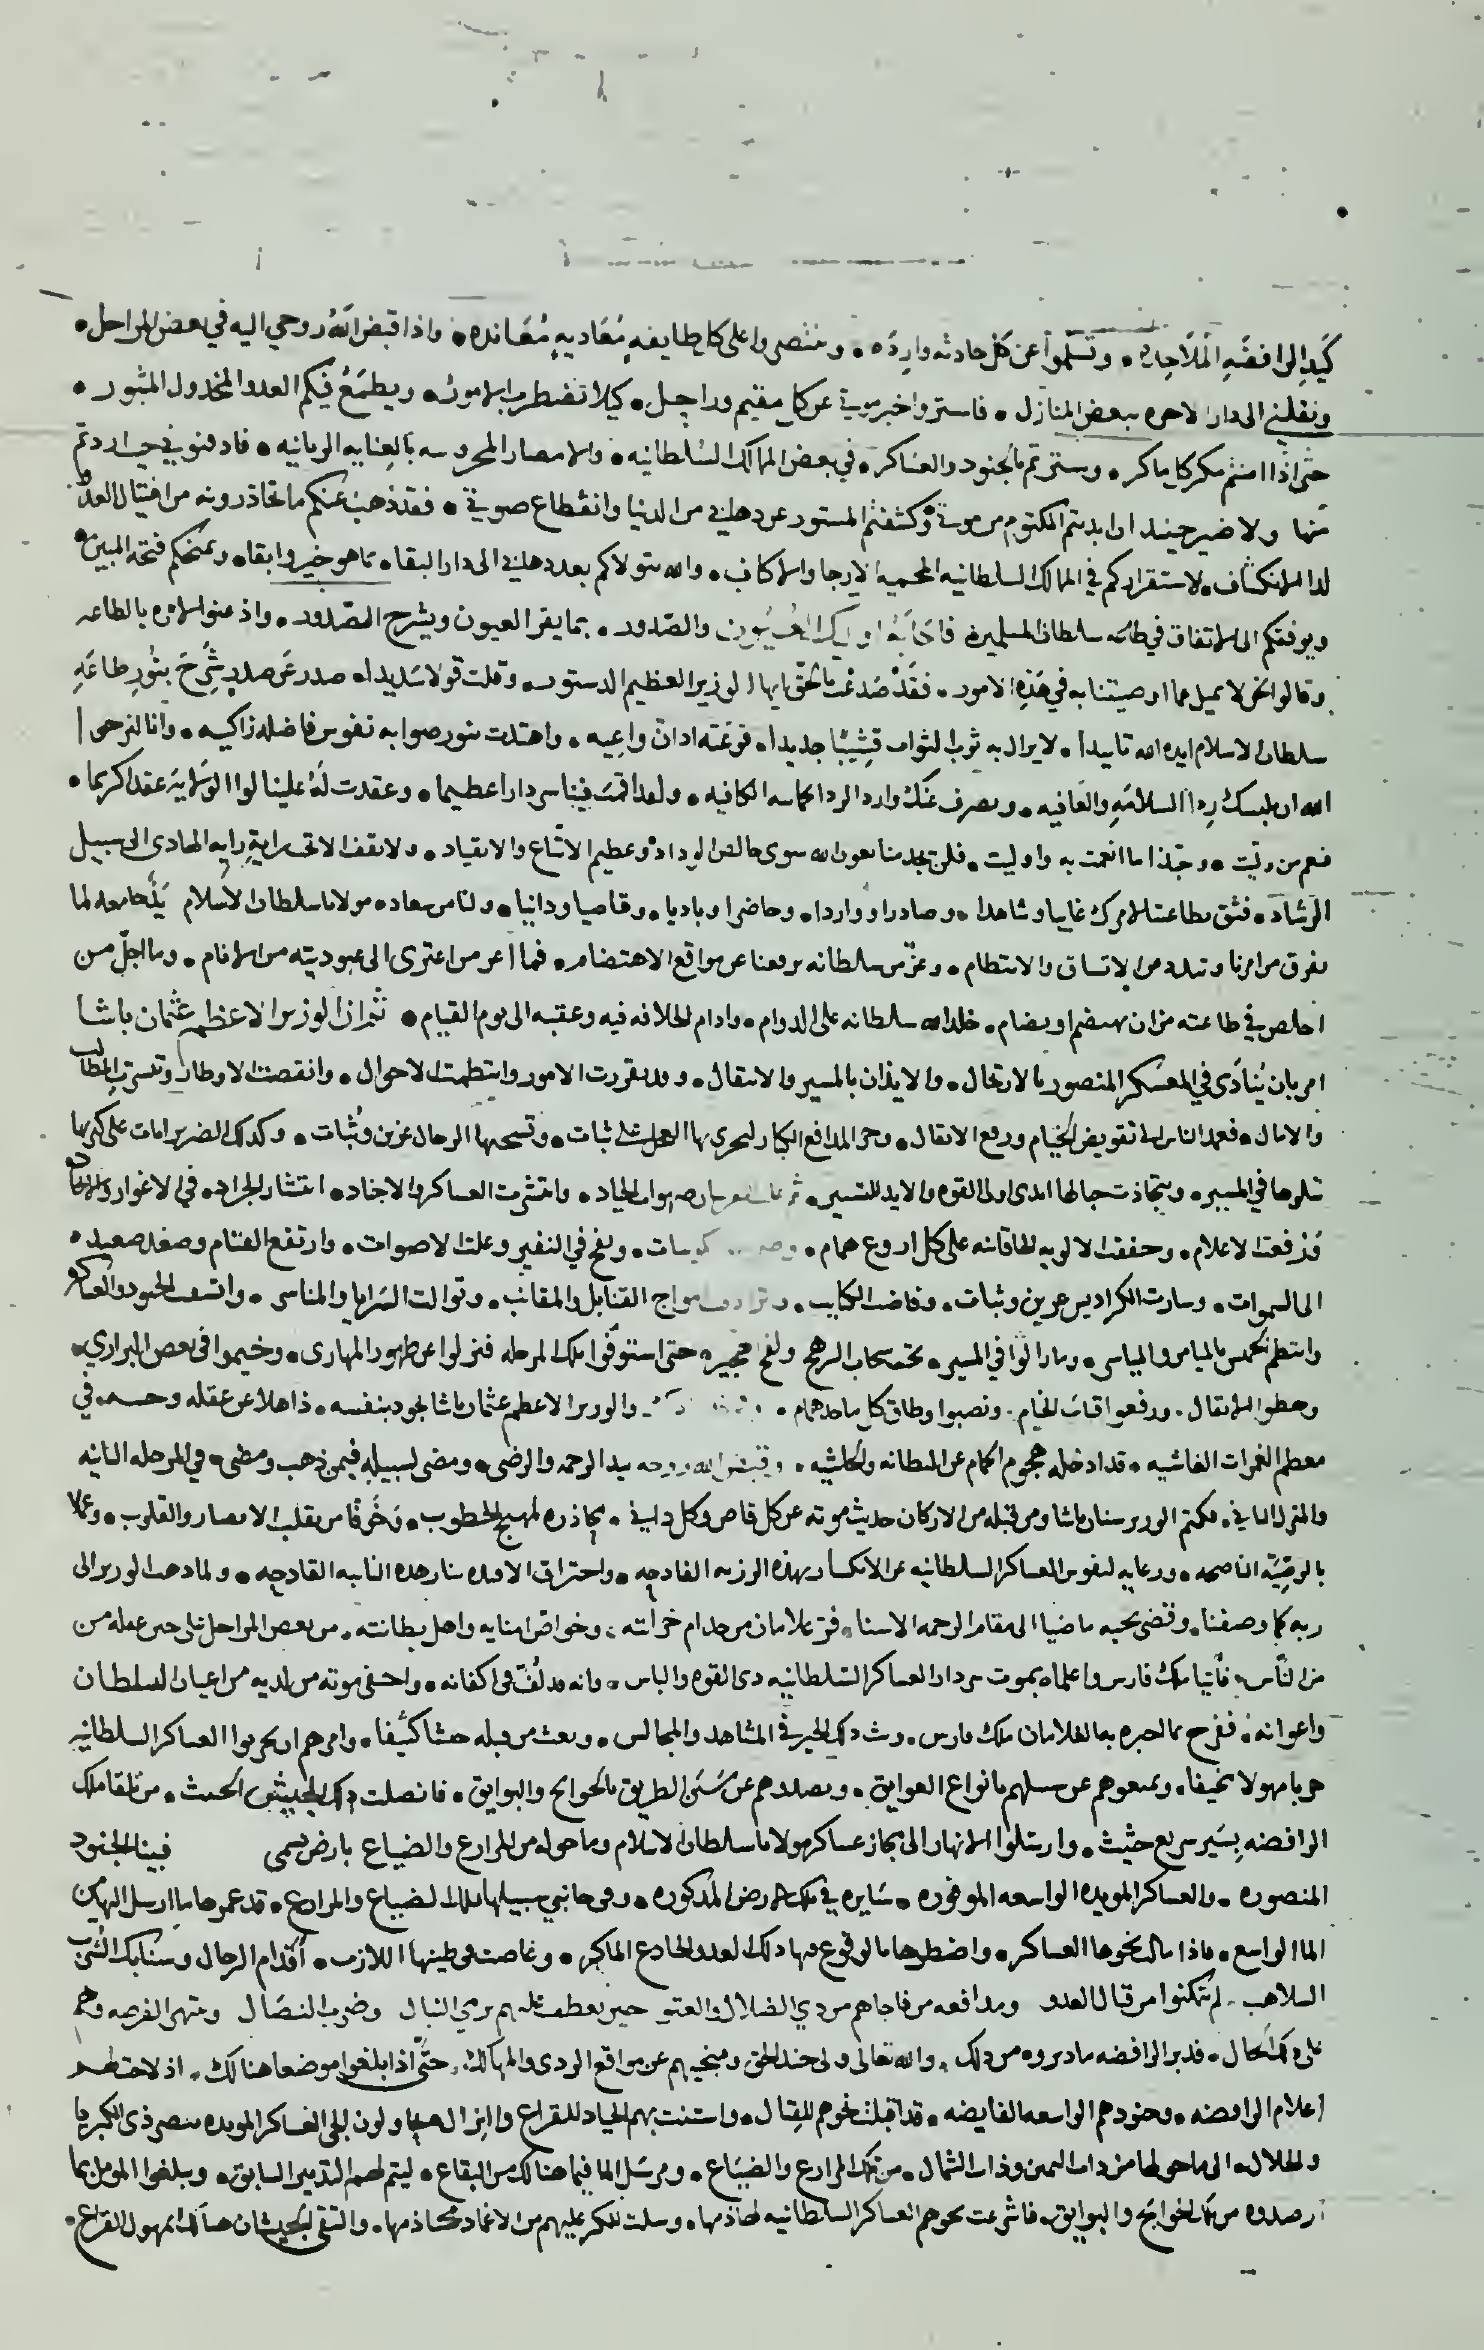 كيد الرافضه الملاحده • وتسلموا عن كل حادثه وارده • وتنتصروا على كل طايفه معاديه معانده • واذا قبض الله روحي اليه في بعض المراحل •
ونقلني الى دار الاخره ببعض المنازل • فاستروا خبر موتي عن كل مقيم وراحل • كيلا تضطرب الامور • ويطمع فيكم العدو المخذول المثبور •
حتى اذا امنتم مكر كل ماكر • وسترتم بالجنود والعساكر • في بعض الممالك السلطانيه • والامصار المحروسه بالعنايه الربانيه • فادفنوني حيث اردتم
منها ولا ضير حينئذ ان ابديتم المكتوم من موتي وكشفتم المستور عن رحلتي من الدنيا وانقطاع صوتي • فقد ذهب عنكم ما تحاذرونه من اغتيال العدو
لدا الانكشاف • لاستقراركم في الممالك السلطانيه المحميه الارجا والاكناف • والله يتولاكم بعد رحلتي الى دار البقا • بما هو خير وابقا • ويمنحكم فتحه المبين •
ويوفقكم الى الاتفاق في طاعه سلطان المسلمين • فاجابه اوليك العيون والصدور • بما يقر العيون ويشرح الصدور • واذعنوا لامره بالطاعه
وقالوا نحن لا نميل عما اوصيتنا به في هذه الامور • فقد صدعت بالحق يايها الوزير العظيم الدستور • وقلت قولا سديدا • صدر عن صدر شرح بنور طاعه
سلطان الاسلام ايده الله تاييدا • لا يزال به ثوب الثواب قشيبا جديدا • فوعته اذان واعيه • واهتدت بنور صوابه نفوس فاضله زاكيه • وانا لنرجوا
الله ان يلبسك ردا السلامه والعافيه • ويصرف عنك وارد الردا بكاسه الكافيه • ولقد اقمت فينا سردارا عظيما • وعقدت له علينا لوا الولايه عقدا كريما •
فنعم من وليت • وحبذا ما انعمت به واوليت • فلن تجد منا بعون الله سوى خالص الوداد وعظيم الاتباع والانقياد • ولا نقف الا تحت رايه رايه الهادي الى سبيل
الرشاد • فثق بطاعتنا لامرك غايبا وشاهدا • وصادرا وواردا • وحاضرا وباديا • وقاصيا ودانيا • ولنا من سعاده مولانا سلطان الاسلام يد جامعه لما
تفرق من امرنا وتبدد من الاتساق والانتظام • وعز من سلطانه يرفعنا عن مواقع الاهتضام • فما اعز من اعتزى الى عبوديته من الانام • وما اجل من
اخلص في طاعته من ان يهتضم او يضام • خلد الله سلطانه على الدوام • وادام الخلافه فيه وعقبه الى يوم القيام • ثم ان الوزير الاعظم عثمان باشا
امر بان ينادى في المعسكر المنصور بالارتحال • والايذان بالمسير والانتقال • وقد تقررت الامور وانتظمت الاحوال • وانقضت الاوطار وتيسرت المطالب
والامال • فعمد الناس الى تقويض الخيام ورفع الاثقال • وجر المدافع الكبار لتجري بها العجل على ثبات • وتسحبها الرجال عزين وثبات • وكذلك الضربزانات على كثرتها
تتلوها في المسير • ويتجاذب حبالها ايدي اولي القوه والايد للتيسير • ثم علت الفرسان صهوات الجياد • وانتشرت العساكر والاجناد • انتشار الجراد • في الاغوار والانجاد
ورفعت الاعلام • وخفقت الالويه الخاقانيه على كل اروع همام • وضربت الكوسات • ونفخ في النفير وعلت الاصوات • وارتفع القتام وصعد صعيده •
الى السموات • وسارت الكراديس عزين وثبات • وفاضت الكتايب • وترادفت امواج القنابل والمقانب • وتوالت السرايا والمناسر • واتسقت الجنود والعساكر
وانتظم الخميس بالميامن والمياسر • وما زالوا في المسير • تحت سحاب الرهج ولفح الهجير • حتى استوفوا تلك المرحله فنزلوا عن ظهور المهارى • وخيموا في بعض البراري •
وحطوا الاثقال • ورفعوا قباب الخيام • ونصبوا وطاق كل ماجد همام • والوزير الاعظم عثمان باشا يجود بنفسه • ذاهلا عن عقله وحسه • في
معظم الغمرات الغاشيه • قد ادخله هجوم الحمام عن البطانه والحاشيه • وقبض الله روحه بيد الرحمه والرضى • ومضى لسبيله فيمن ذهب ومضى • في المرحله الثانيه
والمنزل الثاني • فكتم الوزير سنان باشا ومن قبله من الاركان حديث موته عن كل قاص وكل داني • محاذره لمهيج الخطوب • وتخوفا من تقلب الابصار والقلوب • وعملا
بالوصيه الناصحه • ورعايه لنفوس العساكر السلطانيه عن الانكسار بهذه الرزيه الفادحه • واحتراق الافيده بنار هذه النايبه القادحه • ولما ذهب الوزير الى
ربه كما وصفنا • وقضى نحبه ماضيا الى مقام الرحمه الاسنا • فر غلامان من خدام خزانته • وخواص امنايه واهل بطانته • من بعض المراحل على حين غفله من
من الناس • فاتيا ملك فارس واعلماه بموت سردار العساكر السلطانيه ذي القوه والباس • وانه قد لف في اكفانه • واخفي موته من لديه من اعيان السلطان
واعوانه • ففرح بما اخبره به الغلامان ملك فارس • وبث ذلك الخبر في المشاهد والمجالس • وبعث من قبله جيشا كثيفا • وامرهم ان يحربوا العساكر السلطانيه
حربا مهولا مخيفا • ويمنعوهم عن سبيلهم بانواع العوايق • ويصدوهم عن سنن الطريق بالجوايح والبوايق • فانصلت ذلك الجيش الخبيث • من تلقا ملك
الرافضه بسير سريع حثيث • وارسلوا الانهار الى مجاز عساكر مولانا سلطان الاسلام وما حوله من المزارع والضياع بارض تسمى فبينا الجنود
المنصوره • والعساكر المويده الواسعه الموفوره • سايره في تلك الارض المذكوره • وفي جانبي سبيلها تلك الضياع والمزارع • قد غمرها ما ارسل اليها من
الما الواسع • فاذا مالت نحوها العساكر • واضطرها بالوقوع فيها ذلك العدو الخادع الماكر • وغاصت في طينها اللازب • اقدام الرجال وسنابك الشزب
السلاهب • لم يتمكنوا من قتال العدو ومدافعه من فاجاهم من ذوي الضلال والعتو حين يعطف عليهم برمي النبال وضرب النصال وينتهز الفرصه وهم
على تلك الحال • فدبر الرافضه ما دبروه من ذلك • والله تعالى ولي جند الحق ومنجيهم عن مواقع الردى والمهالك • حتى اذا بلغوا موضعا هنالك • اذ لاحت لهم
اعلام الرافضه • وجنودهم الواسعه الفايضه • قد اقبلت نحوهم للقتال • واستنت بهم الجياد للقراع والنزال يحاولون الجا العساكر المويده بنصر ذي الكبريا
والجلال • الى ما حولها من ذات اليمين وذات الشمال • من تلك المزارع والضياع • ومرسل الما فيما هنالك من البقاع • ليتم لهم التدبير السابق • ويبلغوا المومل بما
ارصدوه من تلك الجوايح والبوايق • فاشرعت نحوهم العساكر السلطانيه لهاذمها • وسلت للكر عليهم من الاغماد مخاذمها • والتقى الجيشان هنالك لمهول القراع •